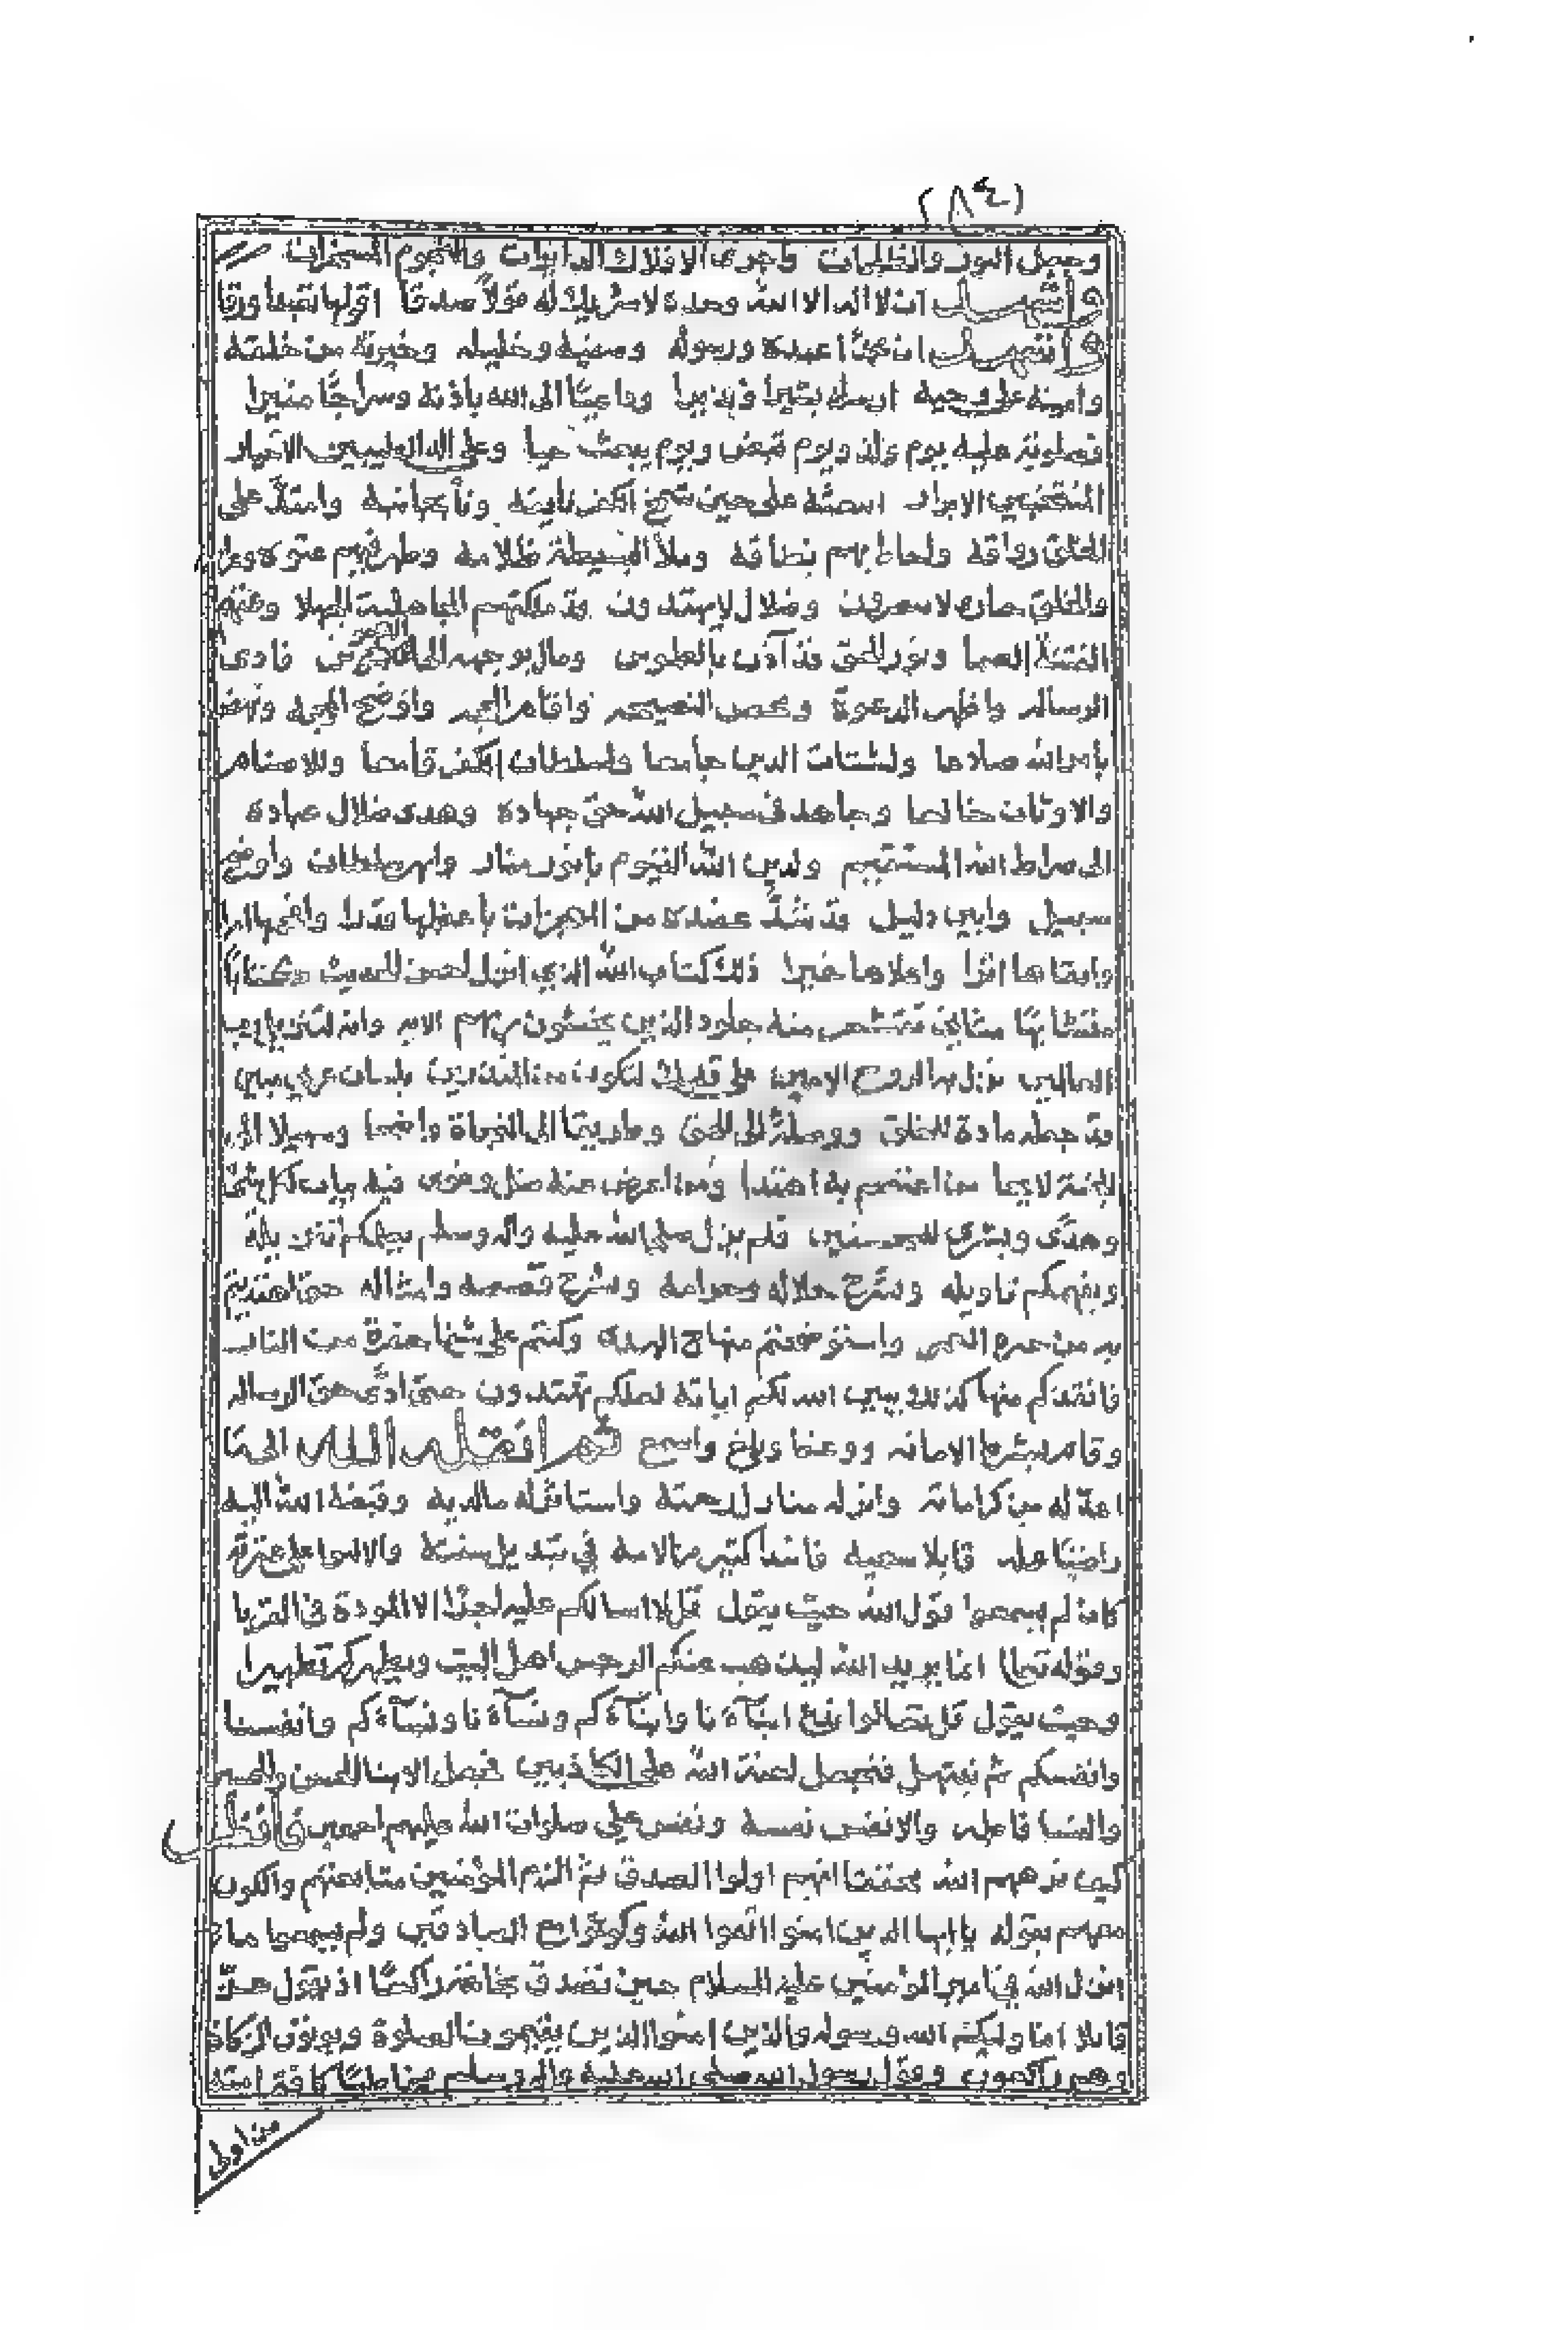 (٨٤)
وجعل النور والظلمات واجرى الافلاك الدايرات والنجوم المسخرات
واشهد ان لا اله الا الله وحده لا شريك له قولاً صدقا اقولها تعبدا ورقا
واشهد ان محمّدا عبده ورسوله وصفيه وخليله وخيرته من خلقه
وامينه على وحيه ارسله بشيرا ونذيرا وداعيًا الى الله باذنه وسراجًا منيرا
وصلوته عليه يوم ولد ويوم قبض ويوم يبعث حيا وعلى اله الطيبين الاخيار
المنتجبين الابرار ابتعثه على حين شمخ الكفر بانفه ونأ بجانبه وامتدّ على
الخلق رواقه واحاط بهم نطاقه وملأ البسيطة ظلامه وظهر فيهم عتوه
والخلق حيارى لا يبصرون وضلال لا يهتدون قد ملكتهم الجاهلية الجهلا وعمتهم
الفتنة الصما ونور الحق قد آذن بالطموس ومال بوجهه الى فادى
الرساله واظهر الدعوة ومحص النصيحه واقام الحجه واوضح المحجه
بأمر الله صادعا ولشتات الدين جامعا ولسلطان الكفر قامعا وللاصنام
والاوثان خالعا وجاهد في سبيل الله حق جهاده وهدى ضلال عباده
الى صراط الله المستقيم ولدين الله القيوم بانور منار وابهر سلطان واوضح
سبيل وابين دليل قد شدّ عضده من المعجزات باعظمها قدرا
وابقاها اثرا واعلاها خبرا ذلك كتاب الله الذي انزل احسن الحديث كتابًا
متشابهًا مثاني تقشعر منه جلود الذين يخشون ربهم الايه وانه لتنزيل رب
العالمين نزل به الروح الامين على قلبك لتكون من المنذرين بلسان عربي مبين
قد جعله مادة للخلق ووصلة الى الحق وطريقا الى النجاة واضحا وسبيلا الى
الجنة لايحا من اعتصم به اهتدا ومن اعرض عنه ضل وغوى فيه بيان كل شي
وهدًى وبشرى للمحسنين فلم يزل صلى الله عليه وآله وسلم يعلمكم تنزيله
ويفهمكم تاويله وشرح حلاله وحرامه وشرح قصصه وامثاله حتى اهتديتم
به من العمى واستوضحتم منهاج الهدى وكنتم على شفا حفرة من النار
فانقذكم منها كذلك يبين الله لكم اياته لعلكم تهتدون حتى ادّى حق الرساله
وقام بشرط الامانه ووعظا وبلغ واسمع ثم انقله الله الى ما
اعدّ له من كراماته وانزله منازل رحمته واستاثر له ما لديه وقبضه الله اليه
راضيا عمله قابلا سعيه فاخذ اكثير من الامه في تبديل سنته والالبوا على عترته
كانهم لم يسمعوا قول الله حيث يقول قل لا اسالكم عليه اجرًا الا المودة في القربا
وقوله تعالى انما يريد الله ليذهب عنكم الرجس اهل البيت ويطهركم تطهيرا
وحيث يقول قل تعالوا ندع ابنآءنا وابنآءكم ونسآءنا ونسآءكم وانفسنا
وانفسكم ثم نبتهل فنجعل لعنة الله على الكاذبين فجعل الابنا الحسن والحسين
والنسا فاطمه والانفس نفسه ونفس علي صلوات الله عليهم اجمعين فانظر
كيف نزههم الله انهم اولوا الصدق ثم الزم المؤمنين متابعتهم والكون
معهم بقوله يا ايها الذين امنوا اتقوا الله وكونوا مع الصادقين ولم يسمعوا ما
انزل الله في امير المؤمنين عليه السلام حين تصدق بخاتمه راكعًا اذ يقول عزّ
قايلا انما وليكم الله ورسوله والذين امنوا الذين يقيمون الصلوة ويوتون الزكاة
وهم راكعون وقول رسول الله صلى الله عليه واله وسلم مخاطبًا كافة امته
من اولى